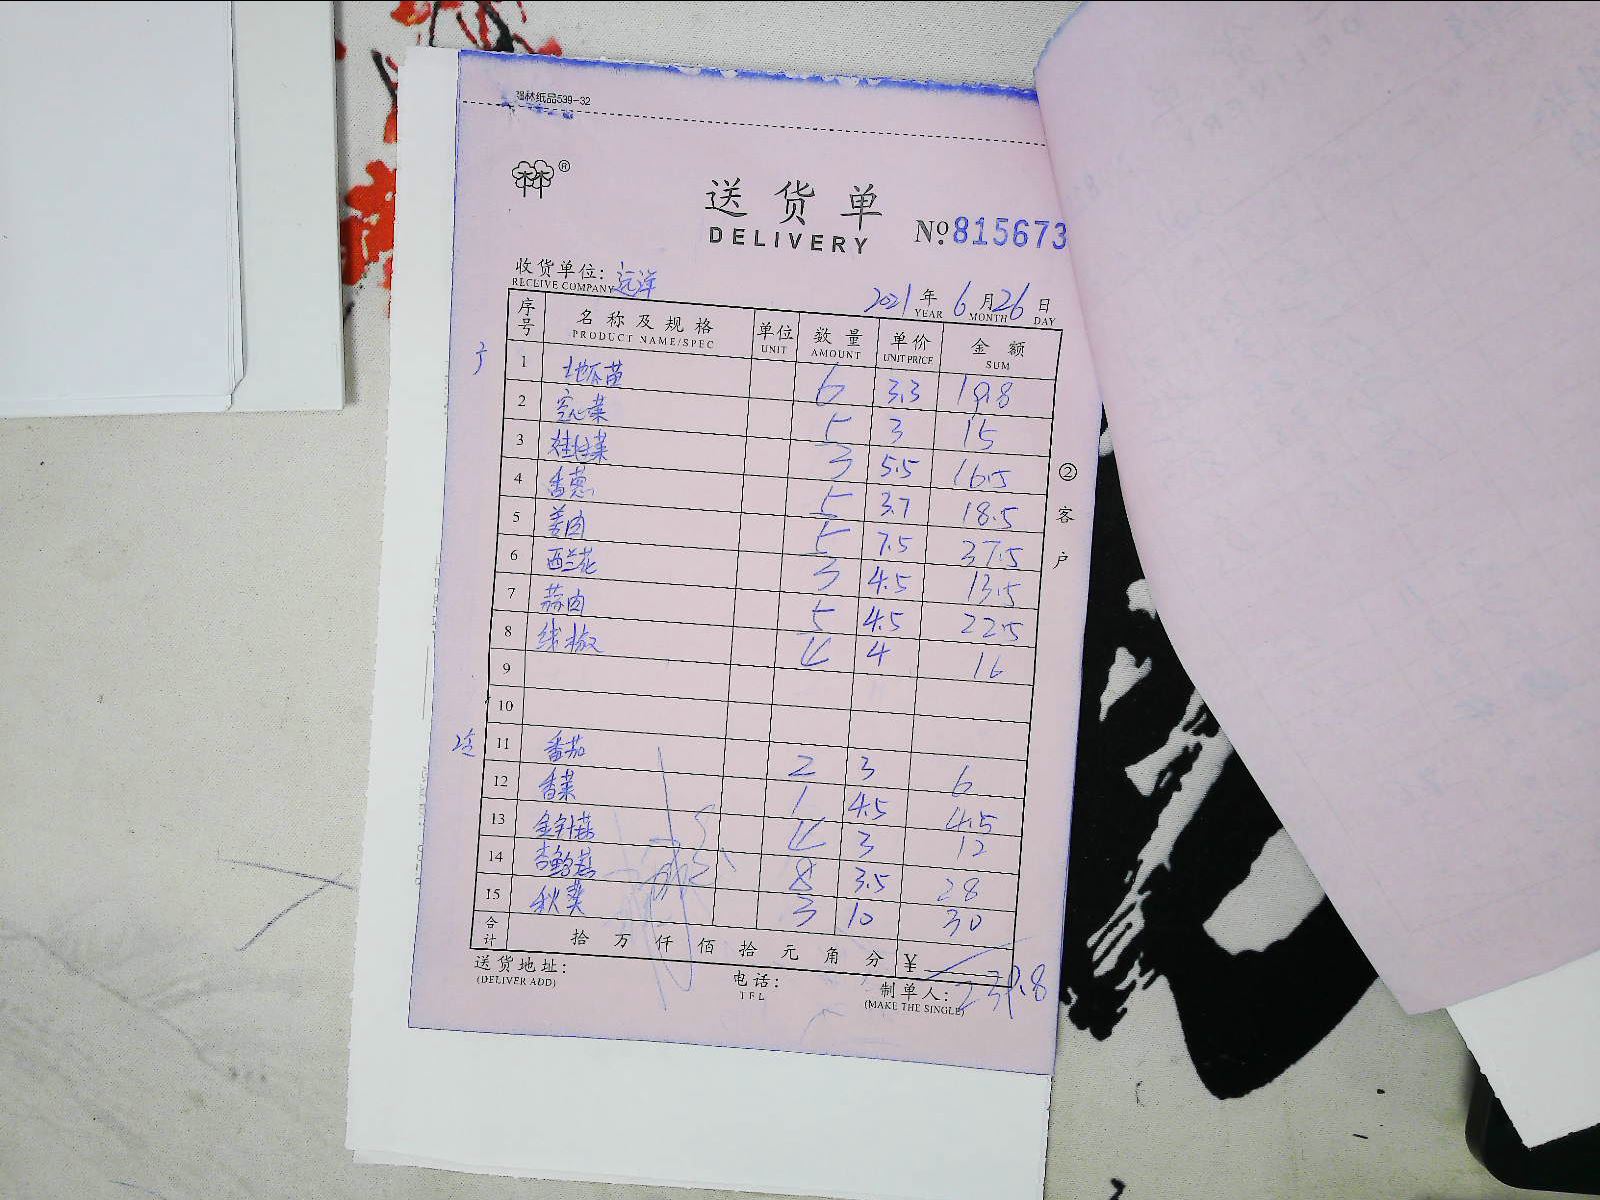 强林纸品539-32
林®
送货单
DELIVERY
№.815673
收货单位：远洋
RECEIVE COMPANY
2021年6月26日
YEAR MONTH DAY
序号 名称及规格 单位 数量 单价 金额
PRODUCT NAME/SPEC UNIT AMOUNT UNIT PRICE SUM
1 地瓜苗 6 3.3 19.8
2 空心菜 5 3 15
3 娃娃菜 3 5.5 16.5
4 香葱 5 3.7 18.5
5 姜肉 5 7.5 37.5
6 西兰花 3 4.5 13.5
7 蒜肉 5 4.5 22.5
8 线椒 4 4 16
9
10
11 番茄 2 3 6
12 香菜 1 4.5 4.5
13 金针菇 4 3 12
14 杏鲍菇 8 3.5 28
15 秋葵 3 10 30
合计 拾万仟佰拾元角分 ¥ 239.8
送货地址： 电话： 制单人：
(DELIVER ADD) TEL (MAKE THE SINGLE)
②客户